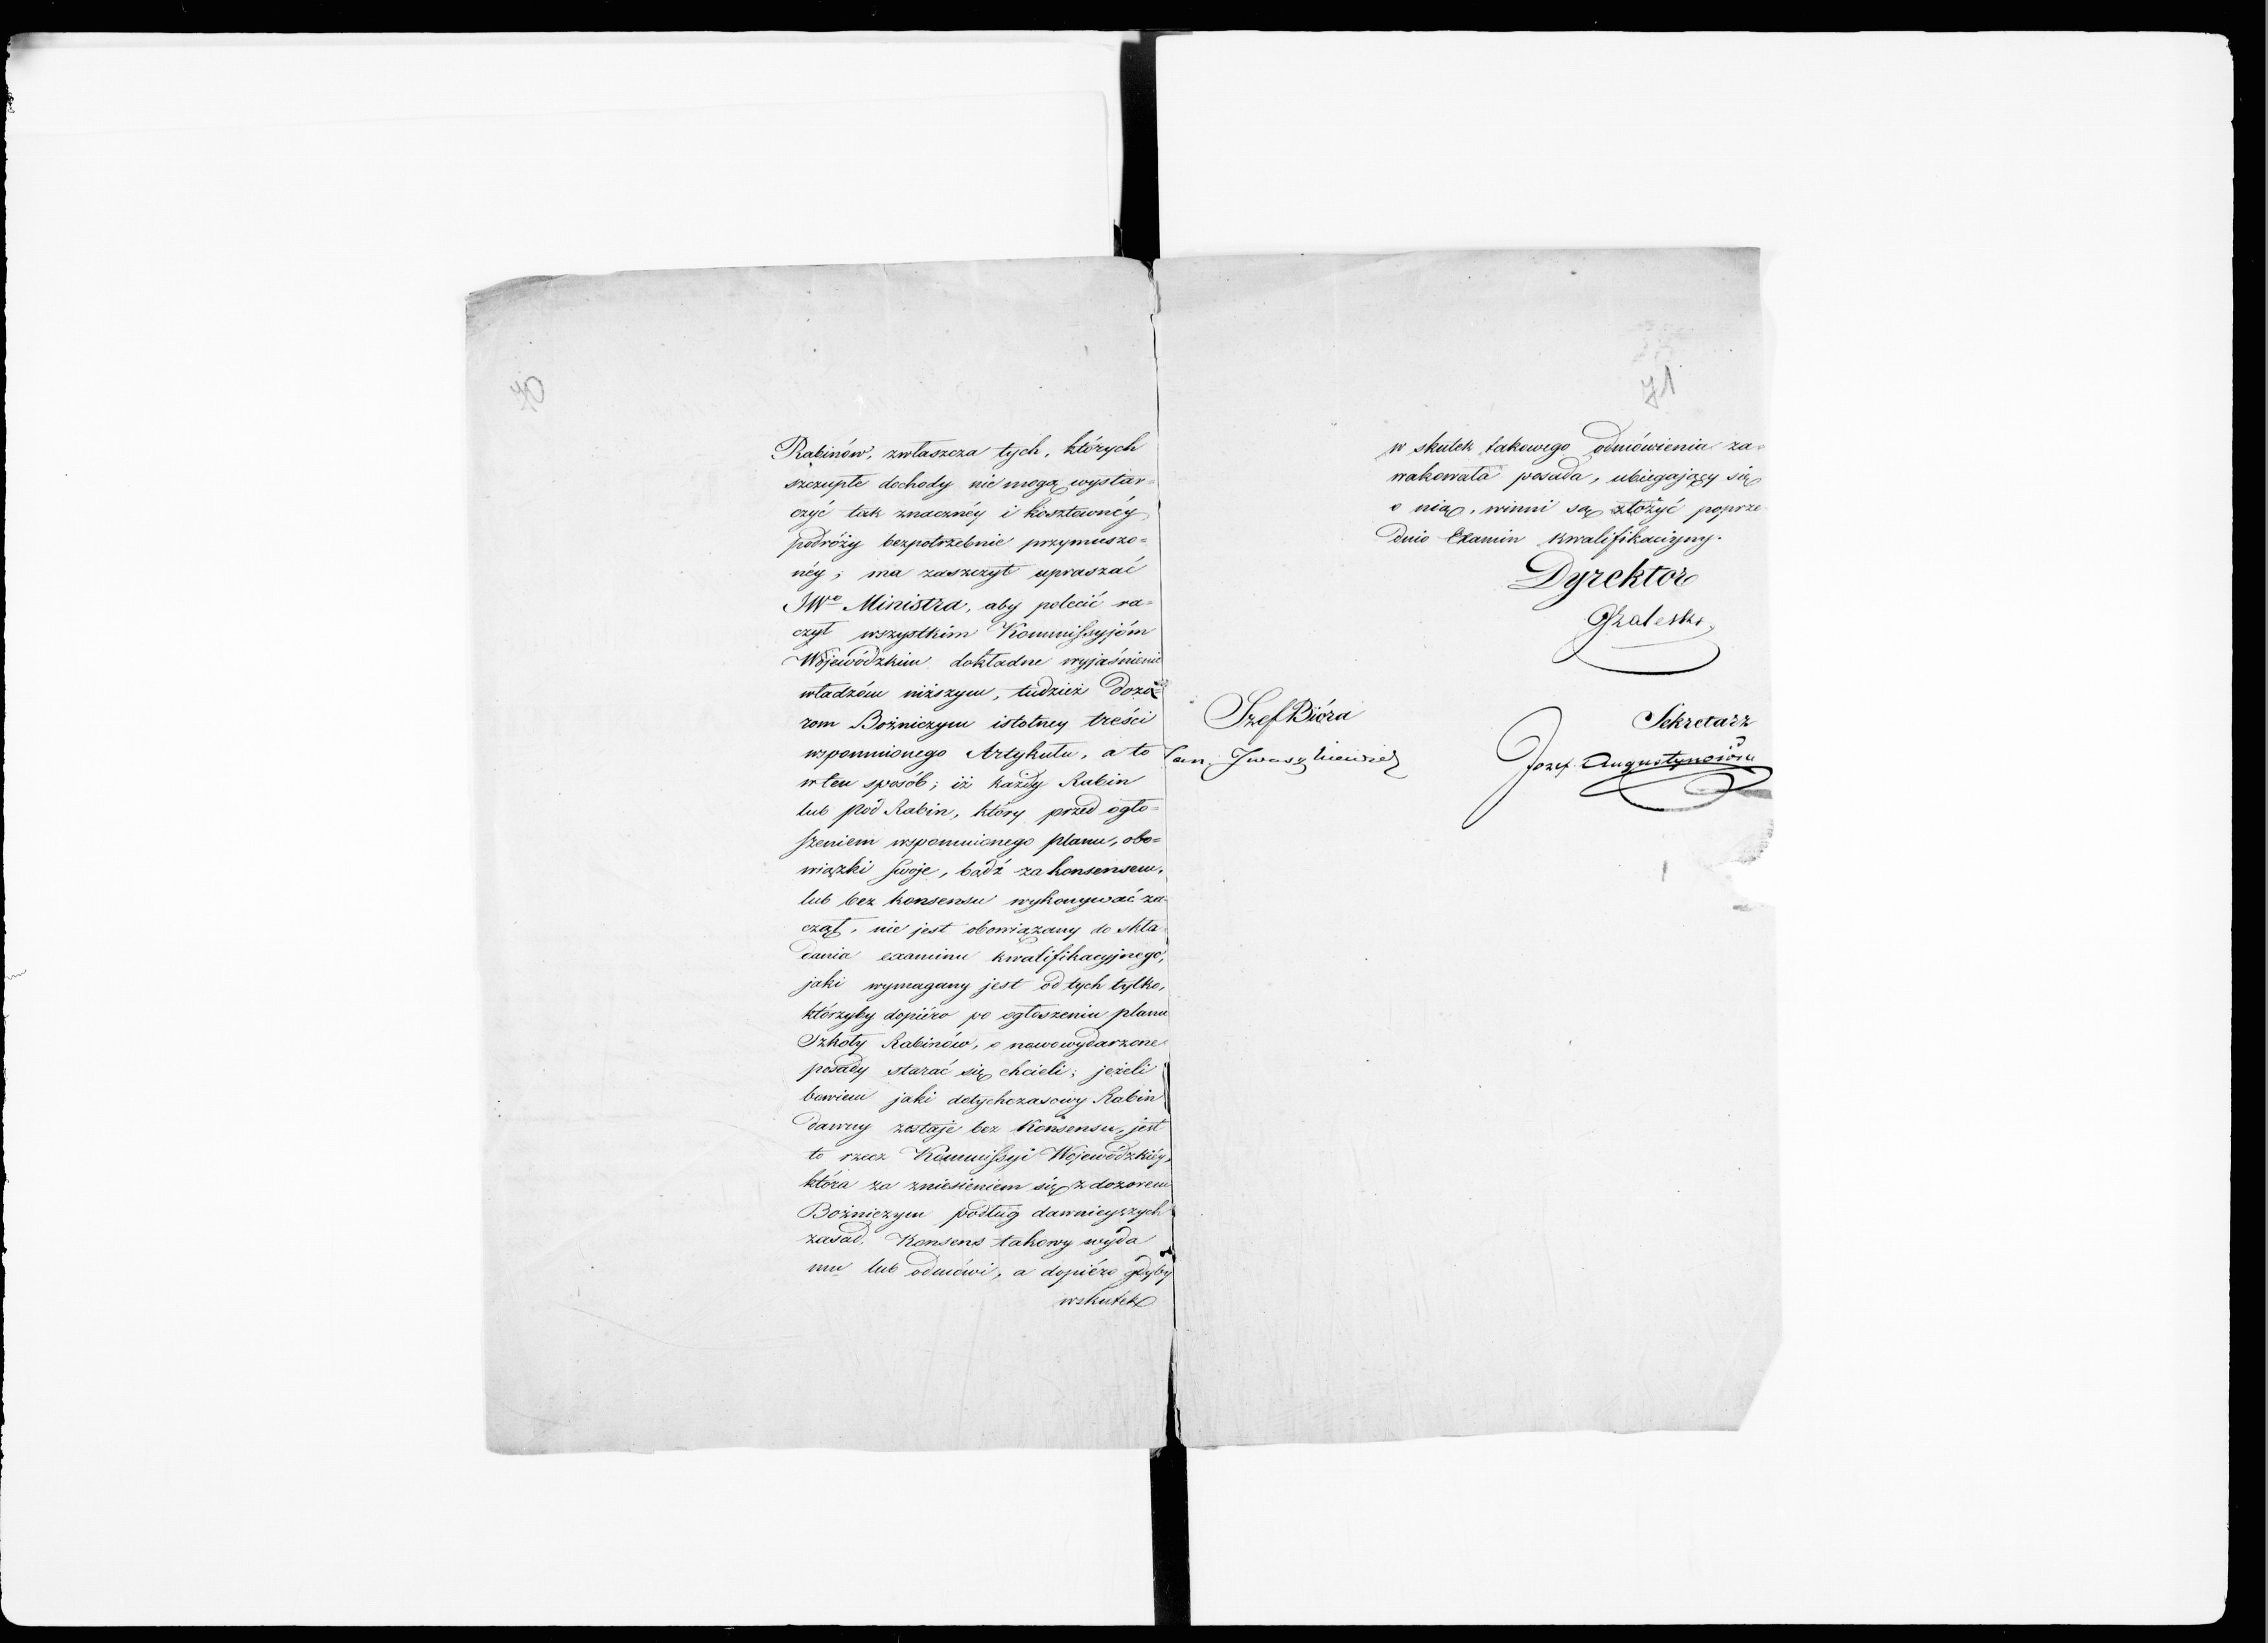 70
Rabinów, zwłaszcza tych, których
szczupłe dochody nie mogą wystar=
czyć tak znacznéy i kosztownéy
podróży bezpotrzebnie przymuszo=
néy; ma zaszczyt upraszać
JWo Ministra, aby polecić ra=
czył wszystkim Kommissyjóm
Wojewódzkim dokładne wyjaśnienie
władzóm niższym, tudzież Dozo=
rom Bożniczym istotney treści
wspomnionego Artykułu, a to
w ten sposób; iż każdy Rabin
lub pod Rabin, który przed ogło=
szeniem wspomnionego planu, obo=
wiązki swoje, bądź za konsensem,
lub bez konsensu wykonywać za
czął, nie jest obowiązany do skła
dania examinu kwalifikacyjnego,
jaki wymagany jest od tych tylko,
którzyby dopiéro po ogłoszeniu planu
Szkoły Rabinów, o nowowydarzone
posady starać się chcieli; jeżeli
bowiem jaki dotychczasowy Rabin
dawny zostaje bez Konsensu, jest
to rzecz Kommissyi Wojewódzkiéy,
która za zniesieniem się z dozorem
Bożniczym podług dawnieyszych
zasad, Konsens takowy wyda
mu lub odmówi, a dopiéro gdyby
wskutek
71
w skutek takowego odmówienia za=
wakowała posada, ubiegający się
o nią, winni są złożyć poprze
dnio Examin kwalifikacyjny.
Dyrektor
JZaleski
Szef Bióra
Sekretarz
Jan Iwaszkiewicz
Jozef Augustynowicz